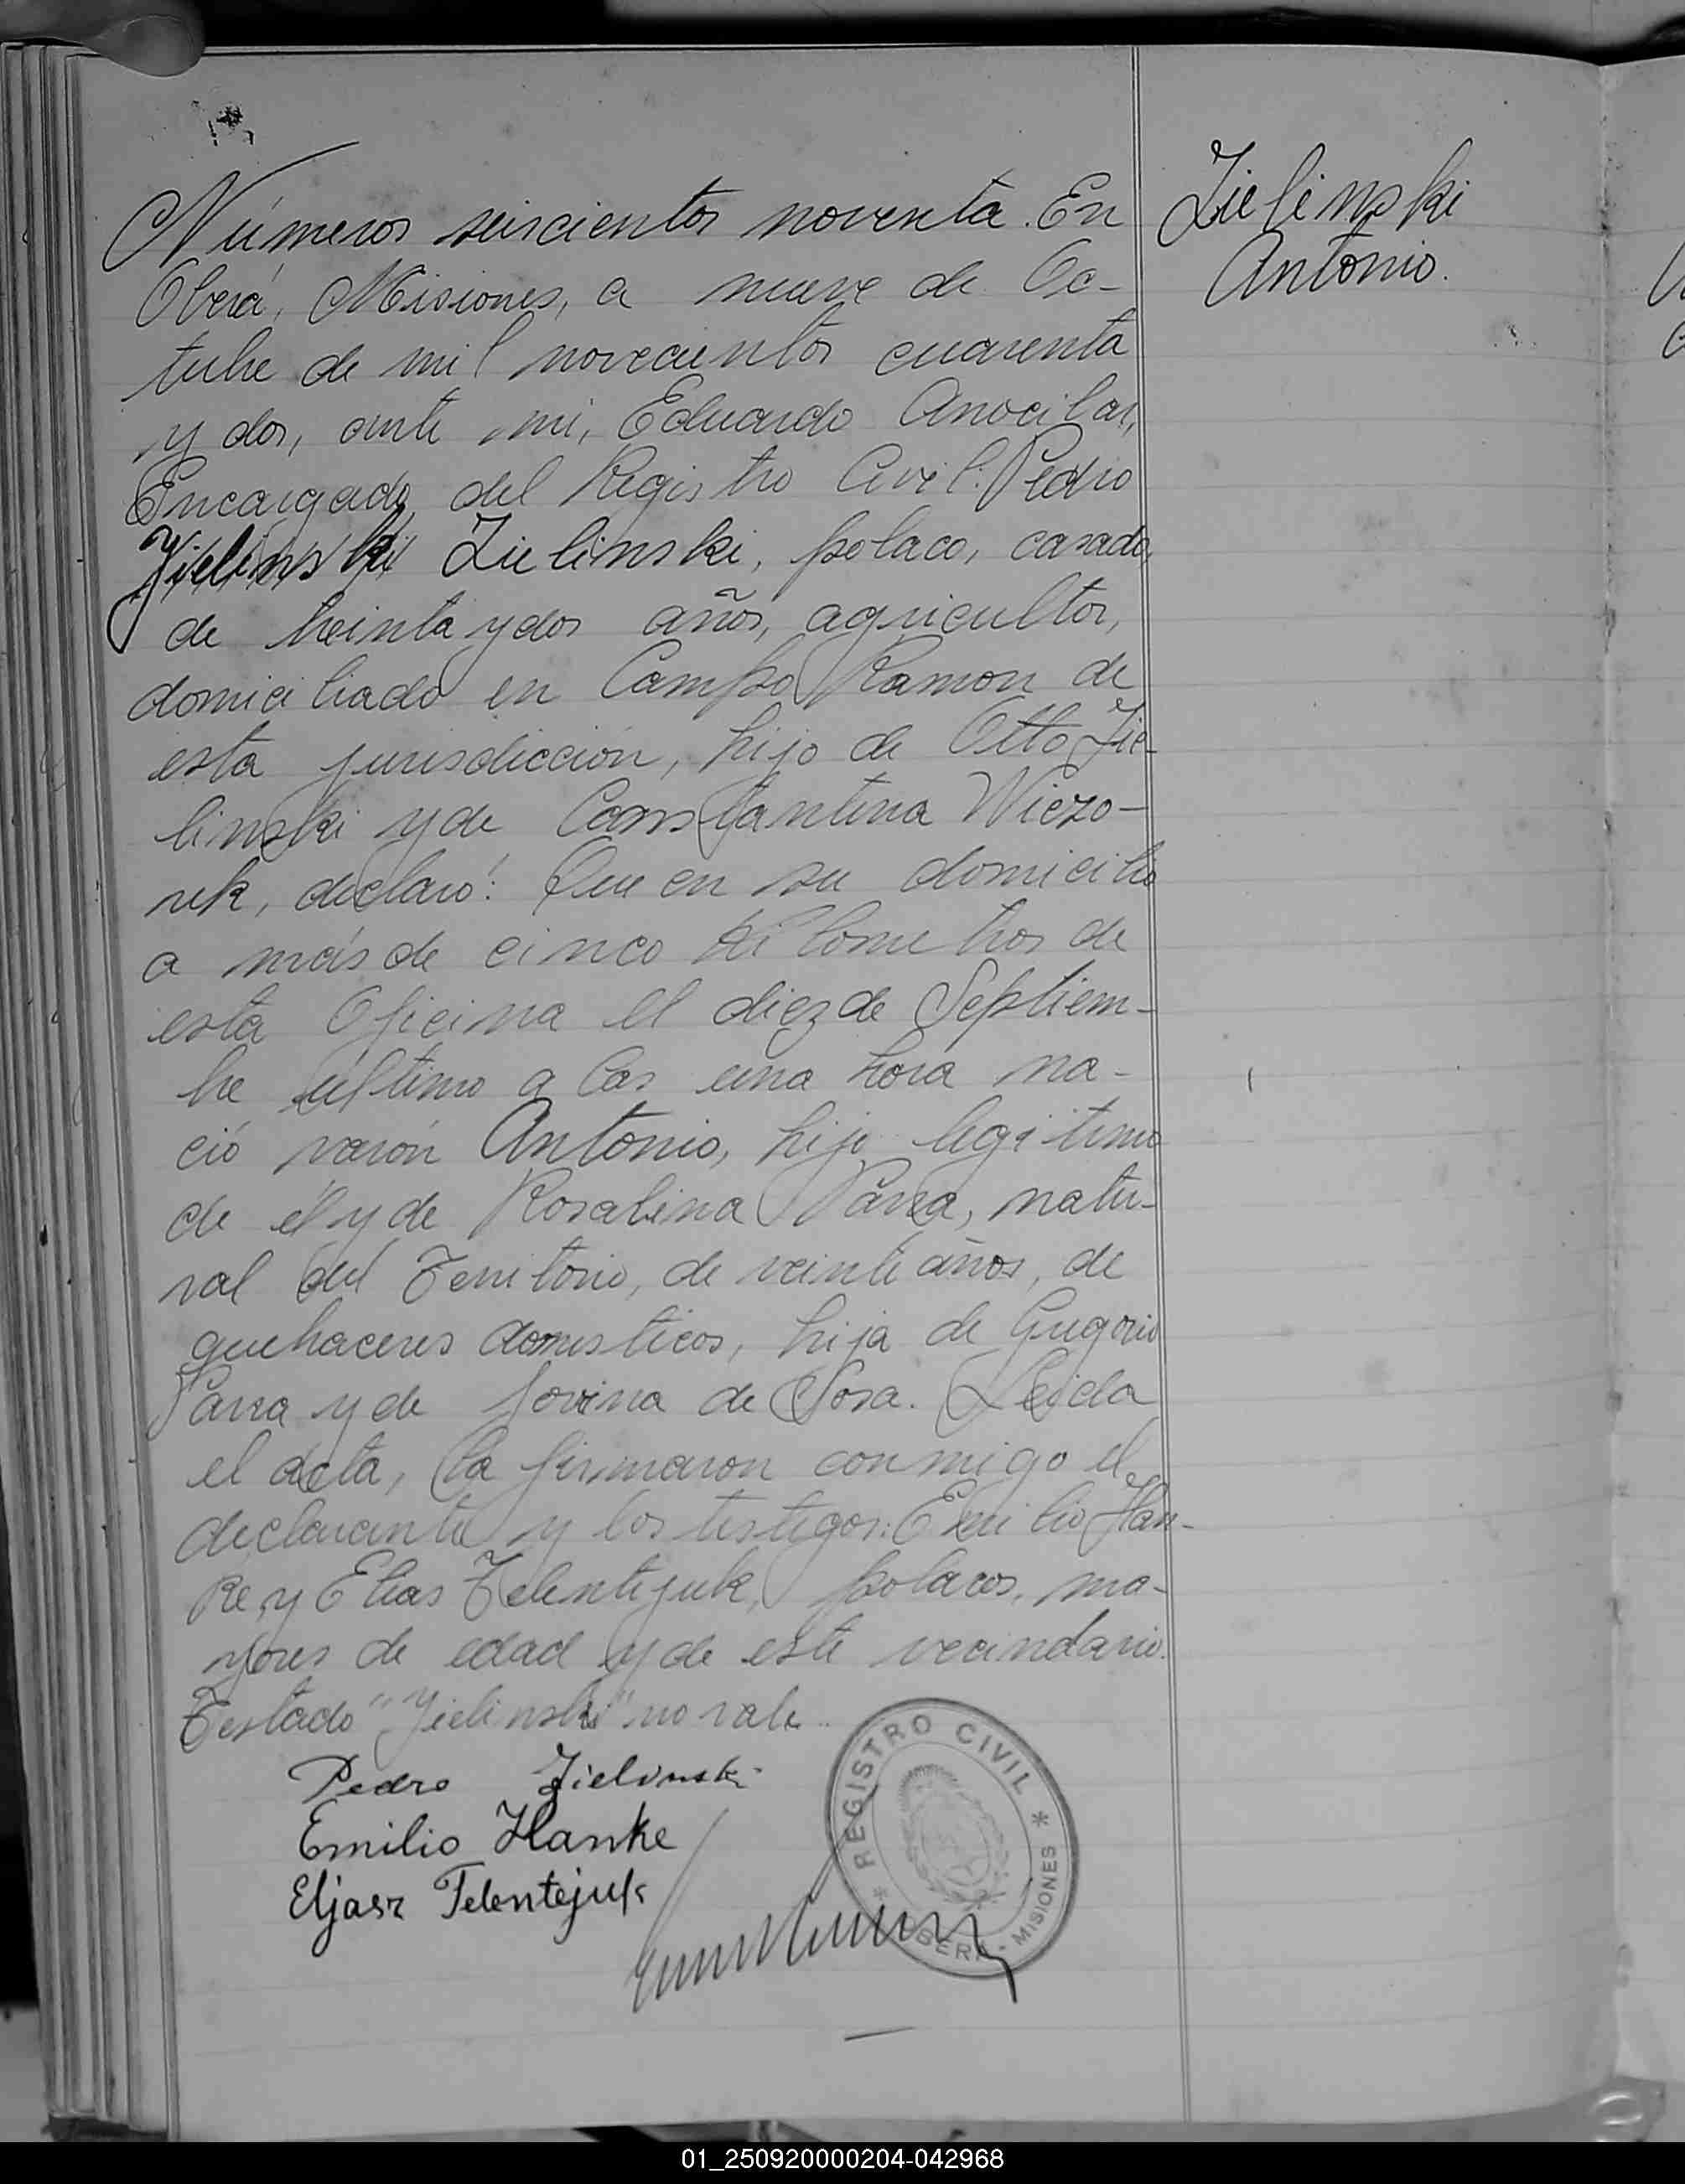 Números seiscientos noventa. En
Oberá, Misiones, a nueve de Oc-
tubre de mil novecientos cuarenta
y dos, ante mi, Eduardo
Encargado del Registro Civil: Pedro
Jielinski Zielinski, polaco, casado,
de treinta y dos años, agricultor,
domiciliado en Campo Ramon de
esta jurisdicción, hijo de Otto Zie-
linski y de Constantina Wiezo-
rek, declaró: Que en su domicilio
a más de cinco kilometros de
esta Oficina el diez de Septiem-
bre último a las una hora na-
ció varón Antonio, hijo legitimo
de él y de Rosalina Parra, natu-
ral del Territorio, de veinte años, de
quehaceres domesticos, hija de Gregorio
Parra y de Jovina de Sosa. Leida
el acta, la firmaron conmigo el
declarante y los testigos: Emilio Han-
ke, y Elias Telentejuk, polacos, ma-
yores de edad y de este vecindario.
Testado "Jielinski" no vale.
Zielinski
Antonio.
Pedro Zielinski
Emilio Hanke
Eljasz Telentejuk
* REGISTRO CIVIL *
OBERÁ - MISIONES
01_250920000204-042968